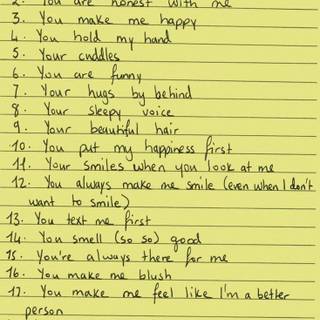 2. You are honest with me
3. You make me happy
4. You hold my hand
5. Your cuddles
6. You are funny
7. Your hugs by behind
8. Your sleepy voice
9. Your beautiful hair
10. You put my happiness first
11. Your smiles when you look at me
12. You always make me smile (even when I don't
want to smile)
13. You text me first
14. You smell (so so) good
15. You're always there for me
16. You make me blush
17. You make me feel like I'm a better
person